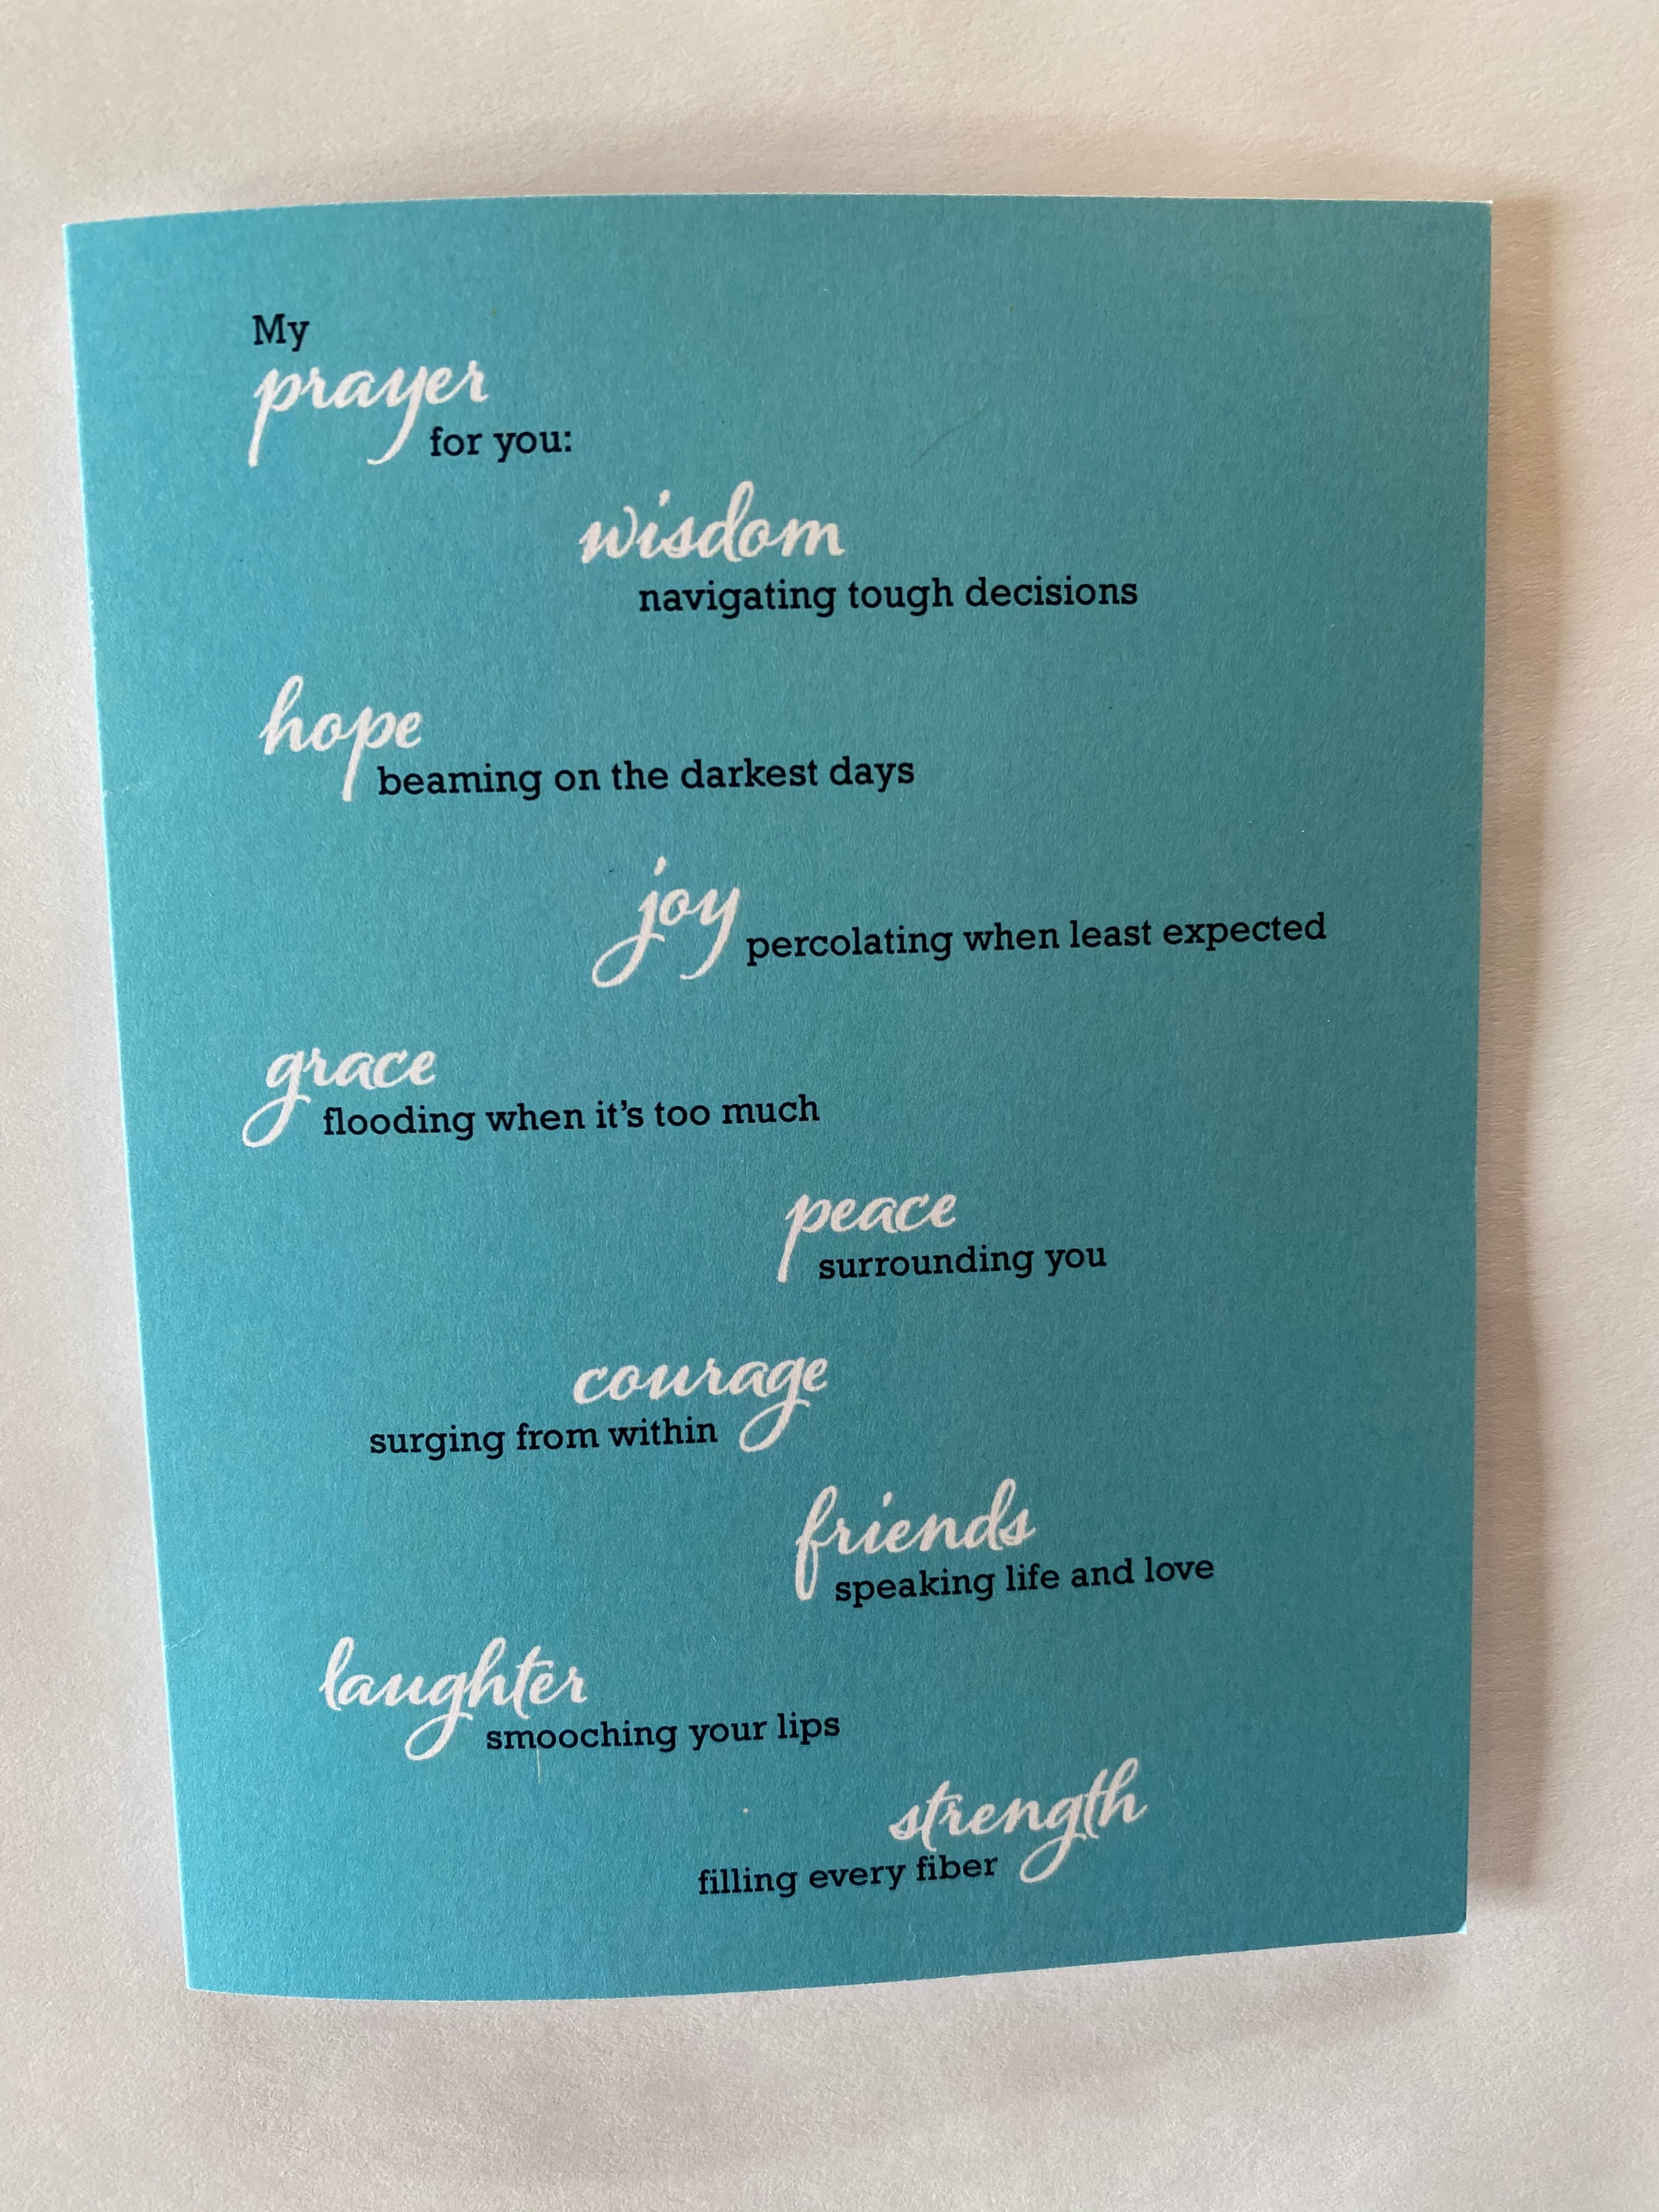 My
prayer
for you:
wisdom
navigating tough decisions
hope
beaming on the darkest days
joy
percolating when least expected
grace
flooding when it's too much
peace
surrounding you
courage
surging from within
friends
speaking life and love
laughter
smooching your lips
strength
filling every fiber